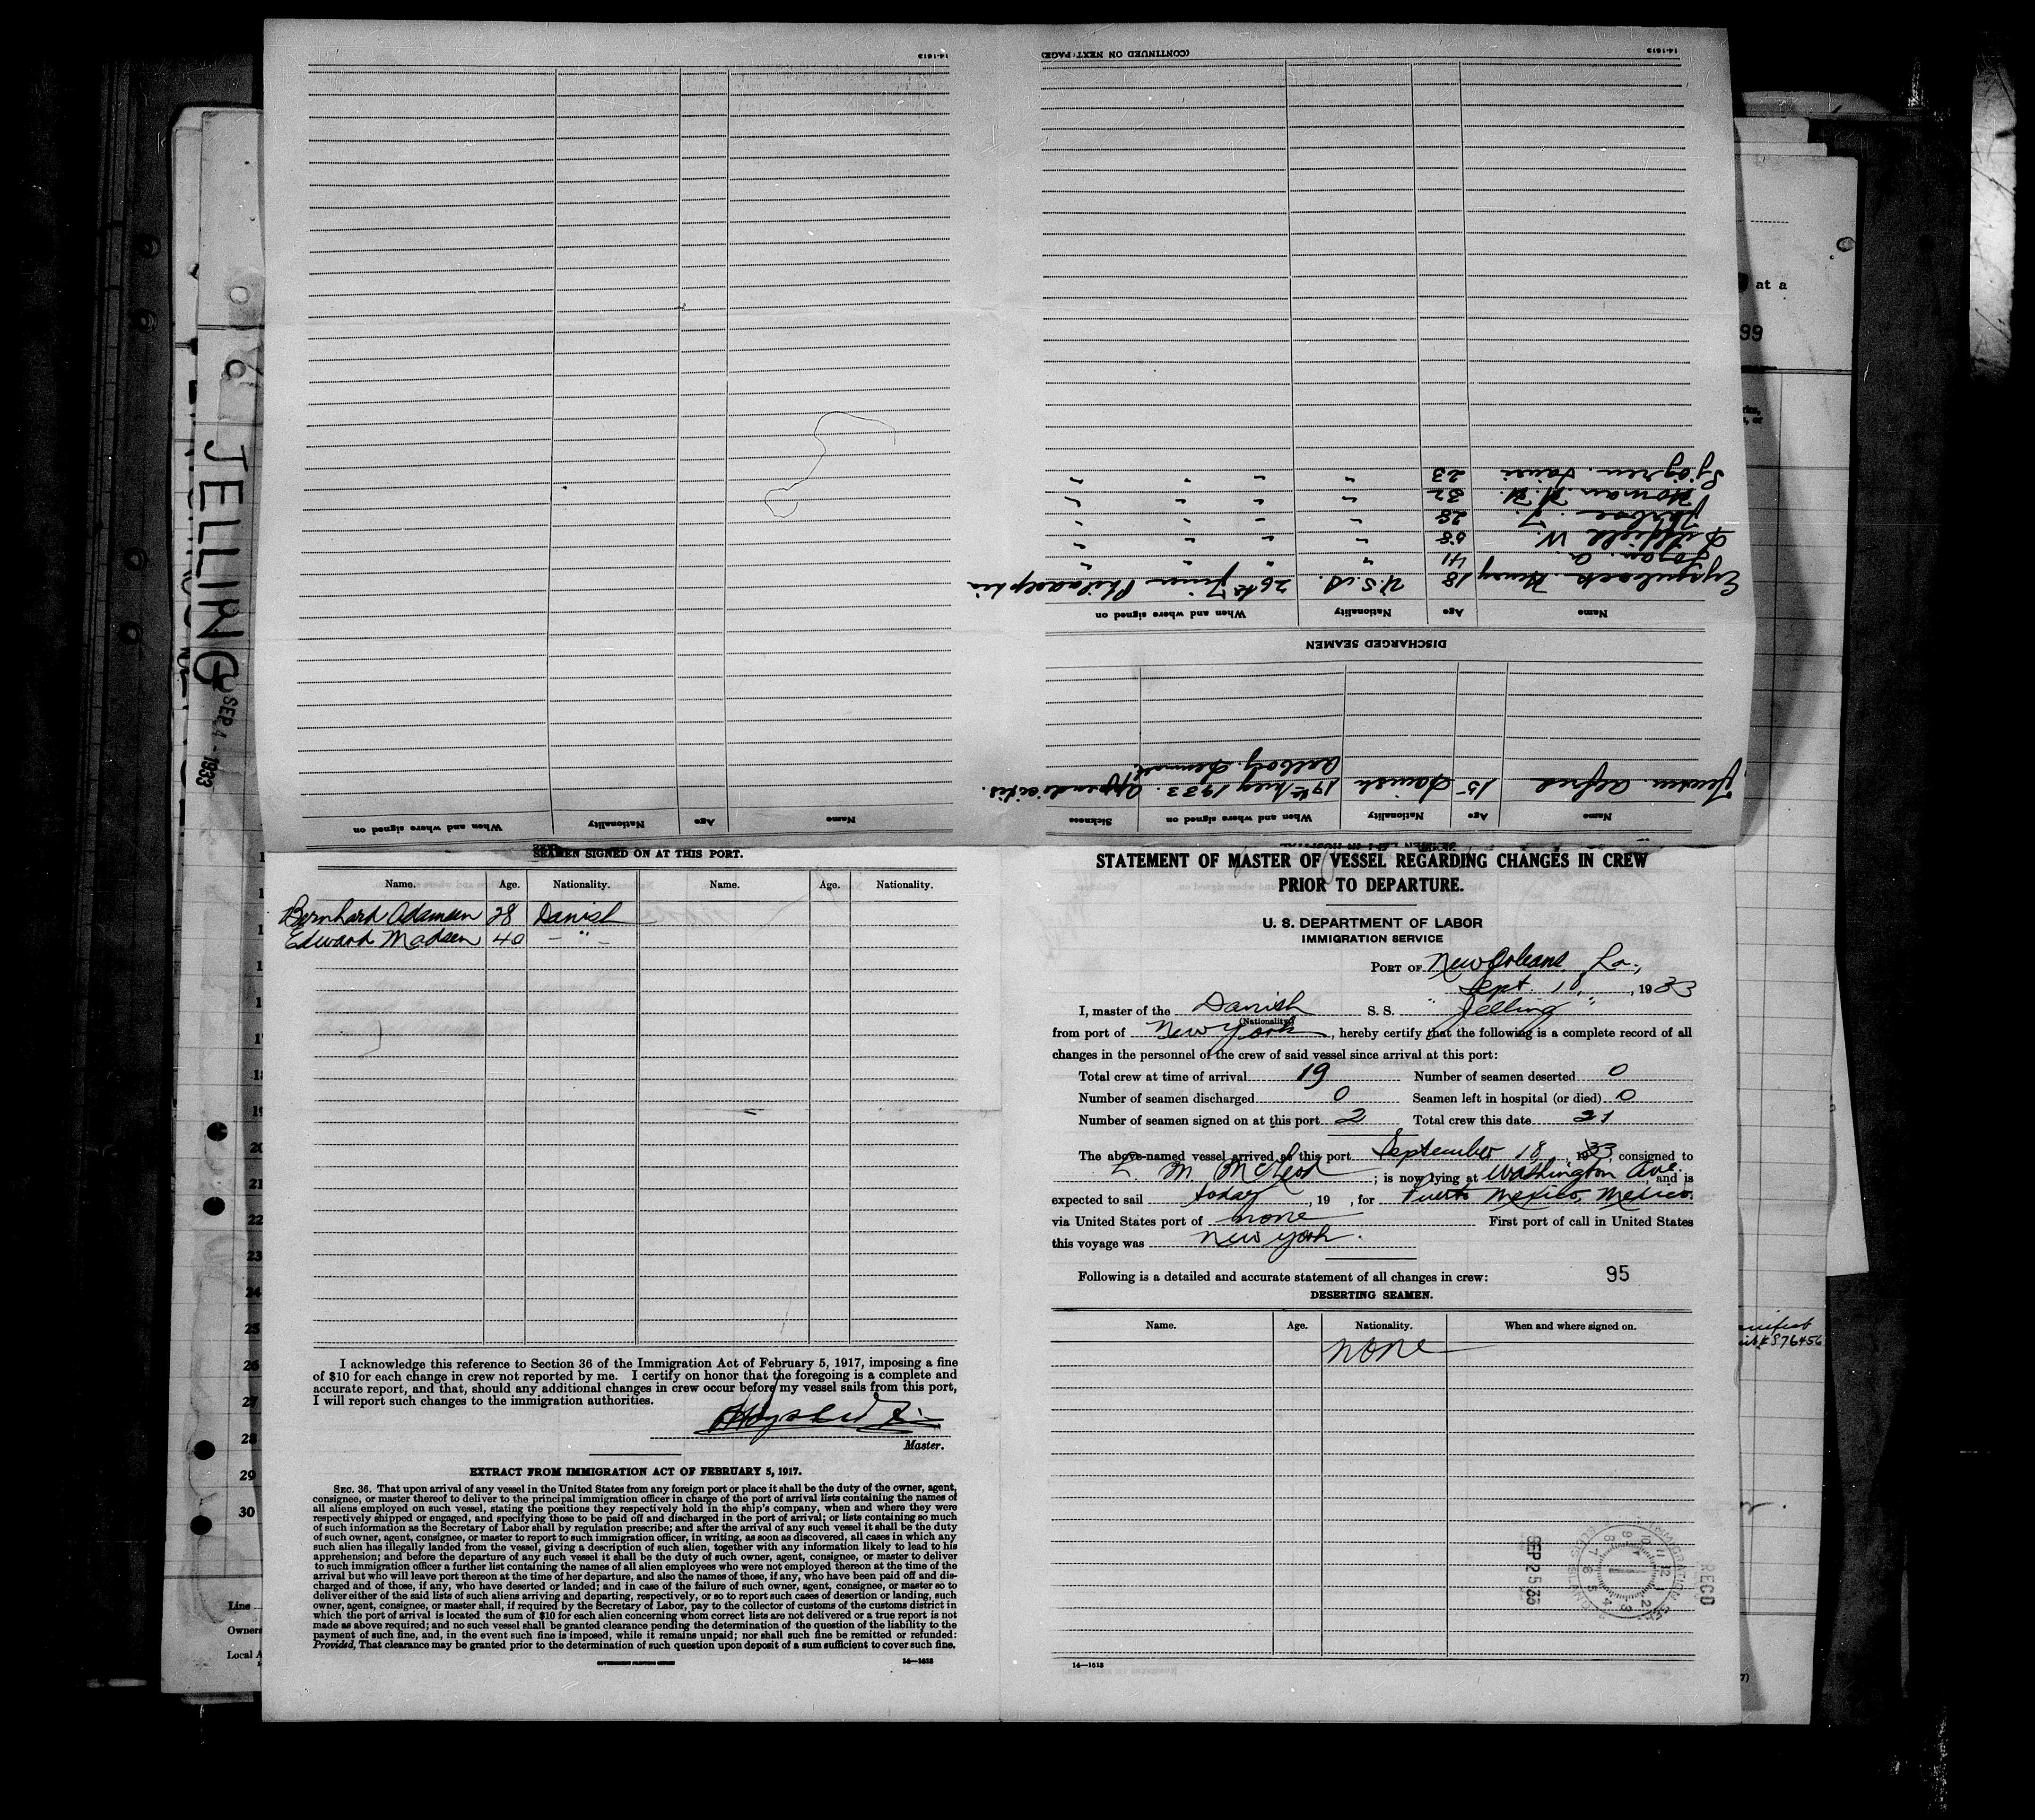 14-1613
(CONTINUED ON NEXT PAGE)
14-1613
Name Age Nationality When and where signed on
Name Age Nationality When and where signed on Sickness
Jensen Alfred 15 Danish 19th May 1933. Appendicitis.
Aalborg Denmark
DISCHARGED SEAMEN
Name Age Nationality When and where signed on
Henry 18 U.S.A. 26th Philadelphia
Logan. A. 41 " " " "
W. 58 " " " "
F. 28 " " " "
Homan. H. H. 32 " " " "
Sjögren. 23 " " " "
JELLING
SEP 4 - 1933
at a
99
SEAMEN SIGNED ON AT THIS PORT.
Name. Age. Nationality. Name. Age. Nationality.
Bernhard Adamsen 28 Danish
Edward Madsen 40 - " -
20
21
22
23
24
25
26
27
28
29
30
Line
Owners
Local A
I acknowledge this reference to Section 36 of the Immigration Act of February 5, 1917, imposing a fine
of $10 for each change in crew not reported by me. I certify on honor that the foregoing is a complete and
accurate report, and that, should any additional changes in crew occur before my vessel sails from this port,
I will report such changes to the immigration authorities.
Master.
EXTRACT FROM IMMIGRATION ACT OF FEBRUARY 5, 1917.
SEC. 36. That upon arrival of any vessel in the United States from any foreign port or place it shall be the duty of the owner, agent,
consignee, or master thereof to deliver to the principal immigration officer in charge of the port of arrival lists containing the names of
all aliens employed on such vessel, stating the positions they respectively hold in the ship's company, when and where they were
respectively shipped or engaged, and specifying those to be paid off and discharged in the port of arrival; or lists containing so much
of such information as the Secretary of Labor shall by regulation prescribe; and after the arrival of any such vessel it shall be the duty
of such owner, agent, consignee, or master to report to such immigration officer, in writing, as soon as discovered, all cases in which any
such alien has illegally landed from the vessel, giving a description of such alien, together with any information likely to lead to his
apprehension; and before the departure of any such vessel it shall be the duty of such owner, agent, consignee, or master to deliver
to such immigration officer a further list containing the names of all alien employees who were not employed thereon at the time of the
arrival but who will leave port thereon at the time of her departure, and also the names of those, if any, who have been paid off and dis-
charged and of those, if any, who have deserted or landed; and in case of the failure of such owner, agent, consignee, or master so to
deliver either of the said lists of such aliens arriving and departing, respectively, or so to report such cases of desertion or landing, such
owner, agent, consignee, or master shall, if required by the Secretary of Labor, pay to the collector of customs of the customs district in
which the port of arrival is located the sum of $10 for each alien concerning whom correct lists are not delivered or a true report is not
made as above required; and no such vessel shall be granted clearance pending the determination of the question of the liability to the
payment of such fine, and, in the event such fine is imposed, while it remains unpaid; nor shall such fine be remitted or refunded:
Provided, That clearance may be granted prior to the determination of such question upon deposit of a sum sufficient to cover such fine.
GOVERNMENT PRINTING OFFICE 14—1613
STATEMENT OF MASTER OF VESSEL REGARDING CHANGES IN CREW
PRIOR TO DEPARTURE.
U. S. DEPARTMENT OF LABOR
IMMIGRATION SERVICE
PORT OF New Orleans, La.,
Sept. 18, , 1933
I, master of the Danish S. S. "Jelling"
(Nationality)
from port of New York , hereby certify that the following is a complete record of all
changes in the personnel of the crew of said vessel since arrival at this port:
Total crew at time of arrival 19 Number of seamen deserted 0
Number of seamen discharged 0 Seamen left in hospital (or died) 0
Number of seamen signed on at this port 2 Total crew this date 21
The above-named vessel arrived at this port September 18, 1933, consigned to
L. M. McLeod ; is now lying at Washington Ave. , and is
expected to sail today , 19 , for Puerto Mexico, Mexico.
via United States port of none First port of call in United States
this voyage was New York.
Following is a detailed and accurate statement of all changes in crew: 95
DESERTING SEAMEN.
Name. Age. Nationality. When and where signed on.
none
SEP 25 33
RECD
14—1613